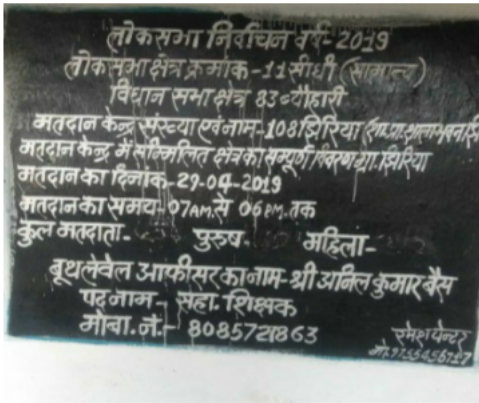 लोकसभा निर्वाचन वर्ष-2019
लोकसभा क्षेत्र क्रमांक-11 सीधी (सामान्य)
विधान सभा क्षेत्र 83 ब्यौहारी
मतदान केन्द्र संख्या एवं नाम-108 झिरिया
मतदान केन्द्र में सम्मिलित क्षेत्र का सम्पूर्ण विवरण ग्रा. झिरिया
मतदान का दिनांक-29-04-2019
मतदान का समय 07 AM. से 06 PM. तक
कुल मतदाता- पुरुष. महिला-
बूथ लेवल आफीसर का नाम-श्री अनिल कुमार बैस
पद नाम- सहा. शिक्षक
मोबा. नं.- 8085721863
रमेश पेन्टर